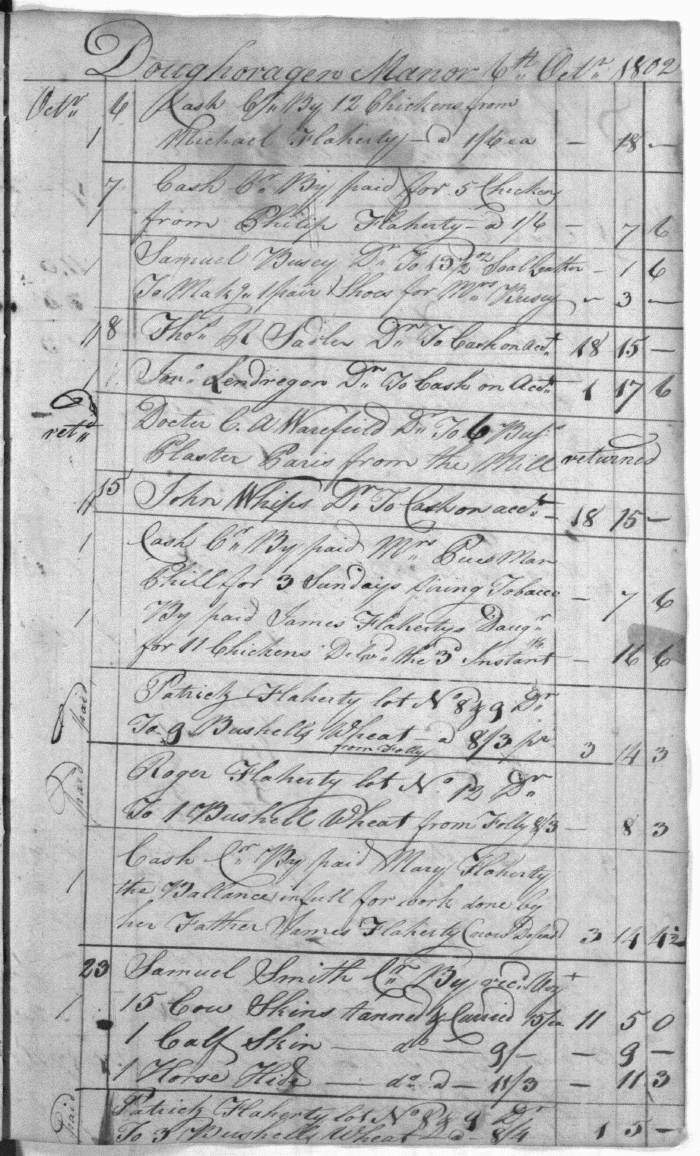 Doughoragen Manor 6th Octr 1802
Octr 6 Cash Cr By 12 Chickens from
1 Michael Flaherty a 1/6 ea — 18 —
7 Cash Cr By paid for 5 Chickens
1 from Philip Flaherty a 1/6 — 7 6
1 Samuel Busey Dr To Soal Leather — 1 6
To Makg 1 pair Shoes for Mrs Busey — 3 —
8 Thos R Sadler Dr To Cash on acct 18 15 —
1 Jno Lendregon Dr To Cash on acct 1 17 6
retd Docter C. A Warefield Dr To 6 Busl
Plaster Paris from the Mill returned
15 John Whips Dr To Cash on acct 18 15 —
1 Cash Cr By paid Mrs Man
Phill for 3 Sundays firing Tobacco — 7 6
1 By paid James Flahertys Daugr
for 11 Chickens Deliv'd the 3d Instant — 16 6
paid Patrick Flaherty lot No 8 & 9 Dr
To 9 Bushells Wheat a 8/3 pr 3 14 3
from Folly
paid Roger Flaherty lot No 12 Dr
To 1 Bushell Wheat from Folly 8/3 — 8 3
Cash Cr By paid Mary Flaherty
1 the Ballance in full for work done by
her Father James Flaherty (now Desead 3 14 4½
23 Samuel Smith Cr By
1 15 Cow Skins tanned & Curried 15/ 11 5 0
1 Calf Skin — do — 9/- — 9 —
1 Horse Hide — do a — 11/3 — 11 3
paid Patrick Flaherty lot No 8 & 9 Dr
To 3 Bushells Wheat — a — 8/4 1 5 —